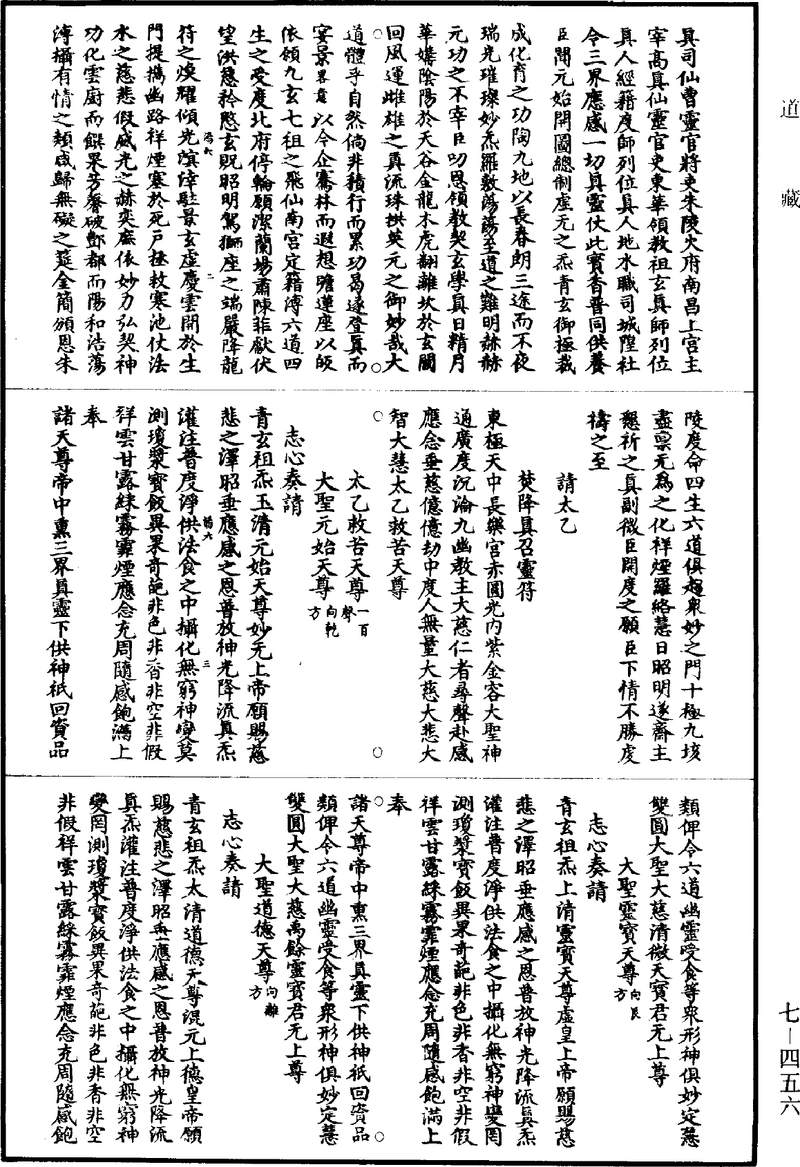 道藏
七—四五六
真司仙曹靈官將吏朱陵火府南昌上宮主
宰高真仙靈官吏東華領教祖玄真師列位
真人經籍度師列位真人地水職司城隍社
令三界應感一切真靈仗此寶香普同供養
臣聞元始開圖總制虛无之炁青玄御極裁
成化育之功陶九地以長春朗三途而不夜
瑞光璀璨妙炁羅敷蕩蕩至道之難明赫赫
元功之不宰臣叨恩領教契玄學真日精月
華媾陰陽於天谷金龍木虎翻離坎於玄關
回風運雌雄之真流珠拱英元之御妙哉大
道體乎自然倘非積行而累功曷遂登真而
宴景畀以令企騫林而遐想瞻蓮座以皈
依領九玄七祖之飛仙南宮定籍溥六道四
生之受度北府停輪願潔蘭場肅陳菲獻伏
望洪慈矜愍玄貺昭明駕獅座之端嚴降龍
符之煥耀傾光旌滓駐景玄虛慶雲開於生
門提揭幽路祥煙塞於死戶拯救寒池仗法
水之慈悲假威光之赫奕麻依妙力弘契神
功化雲廚而饌果芳馨破酆都而陽和浩蕩
溥攝有情之類咸歸無礙之筵金簡頒恩朱
陵度命四生六道俱超衆妙之門十極九垓
盡稟无為之化祥煙羅絡慧日昭明遂齋主
懇祈之真副微臣開度之願臣下情不勝虔
禱之至
請太乙
焚降真召靈符
東極天中長樂宮赤圓光內紫金容大聖神
通廣度沉淪九幽教主大慈仁者尋聲赴感
應念垂慈億億劫中度人無量大慈大悲大
智大慧太乙救苦天尊
太乙救苦天尊一百聲
大聖元始天尊向乾方
志心奏請
青玄祖炁玉清元始天尊妙无上帝願賜慈
悲之澤昭垂應感之恩普放神光降流真炁
灌注普度淨供法食之中攝化無窮神變莫
測瓊漿寶飯異果奇葩非色非香非空非假
祥雲甘露綵霧霏煙應念充周隨感飽滿上
奉
諸天尊帝中熏三界真靈下供神祇回資品
類俾令六道幽靈受食等衆形神俱妙定慧
雙圓大聖大慈清微天寶君无上尊
大聖靈寶天尊向艮方
志心奏請
青玄祖炁上清靈寶天尊虛皇上帝願賜慈
悲之澤昭垂應感之恩普放神光降流真炁
灌注普度淨供法食之中攝化無窮神變罔
測瓊漿寶飯異果奇葩非色非香非空非假
祥雲甘露綵霧霏煙應念充周隨感飽滿上
奉
諸天尊帝中熏三界真靈下供神祇回資品
類俾令六道幽靈受食等衆形神俱妙定慧
雙圓大聖大慈禹餘靈寶君无上尊
大聖道德天尊向離方
志心奏請
青玄祖炁太清道德天尊混元上德皇帝願
賜慈悲之澤昭垂應感之恩普放神光降流
真炁灌注普度淨供法食之中攝化無窮神
變罔測瓊漿寶飯異果奇葩非色非香非空
非假祥雲甘露綵霧霏煙應念充周隨感飽